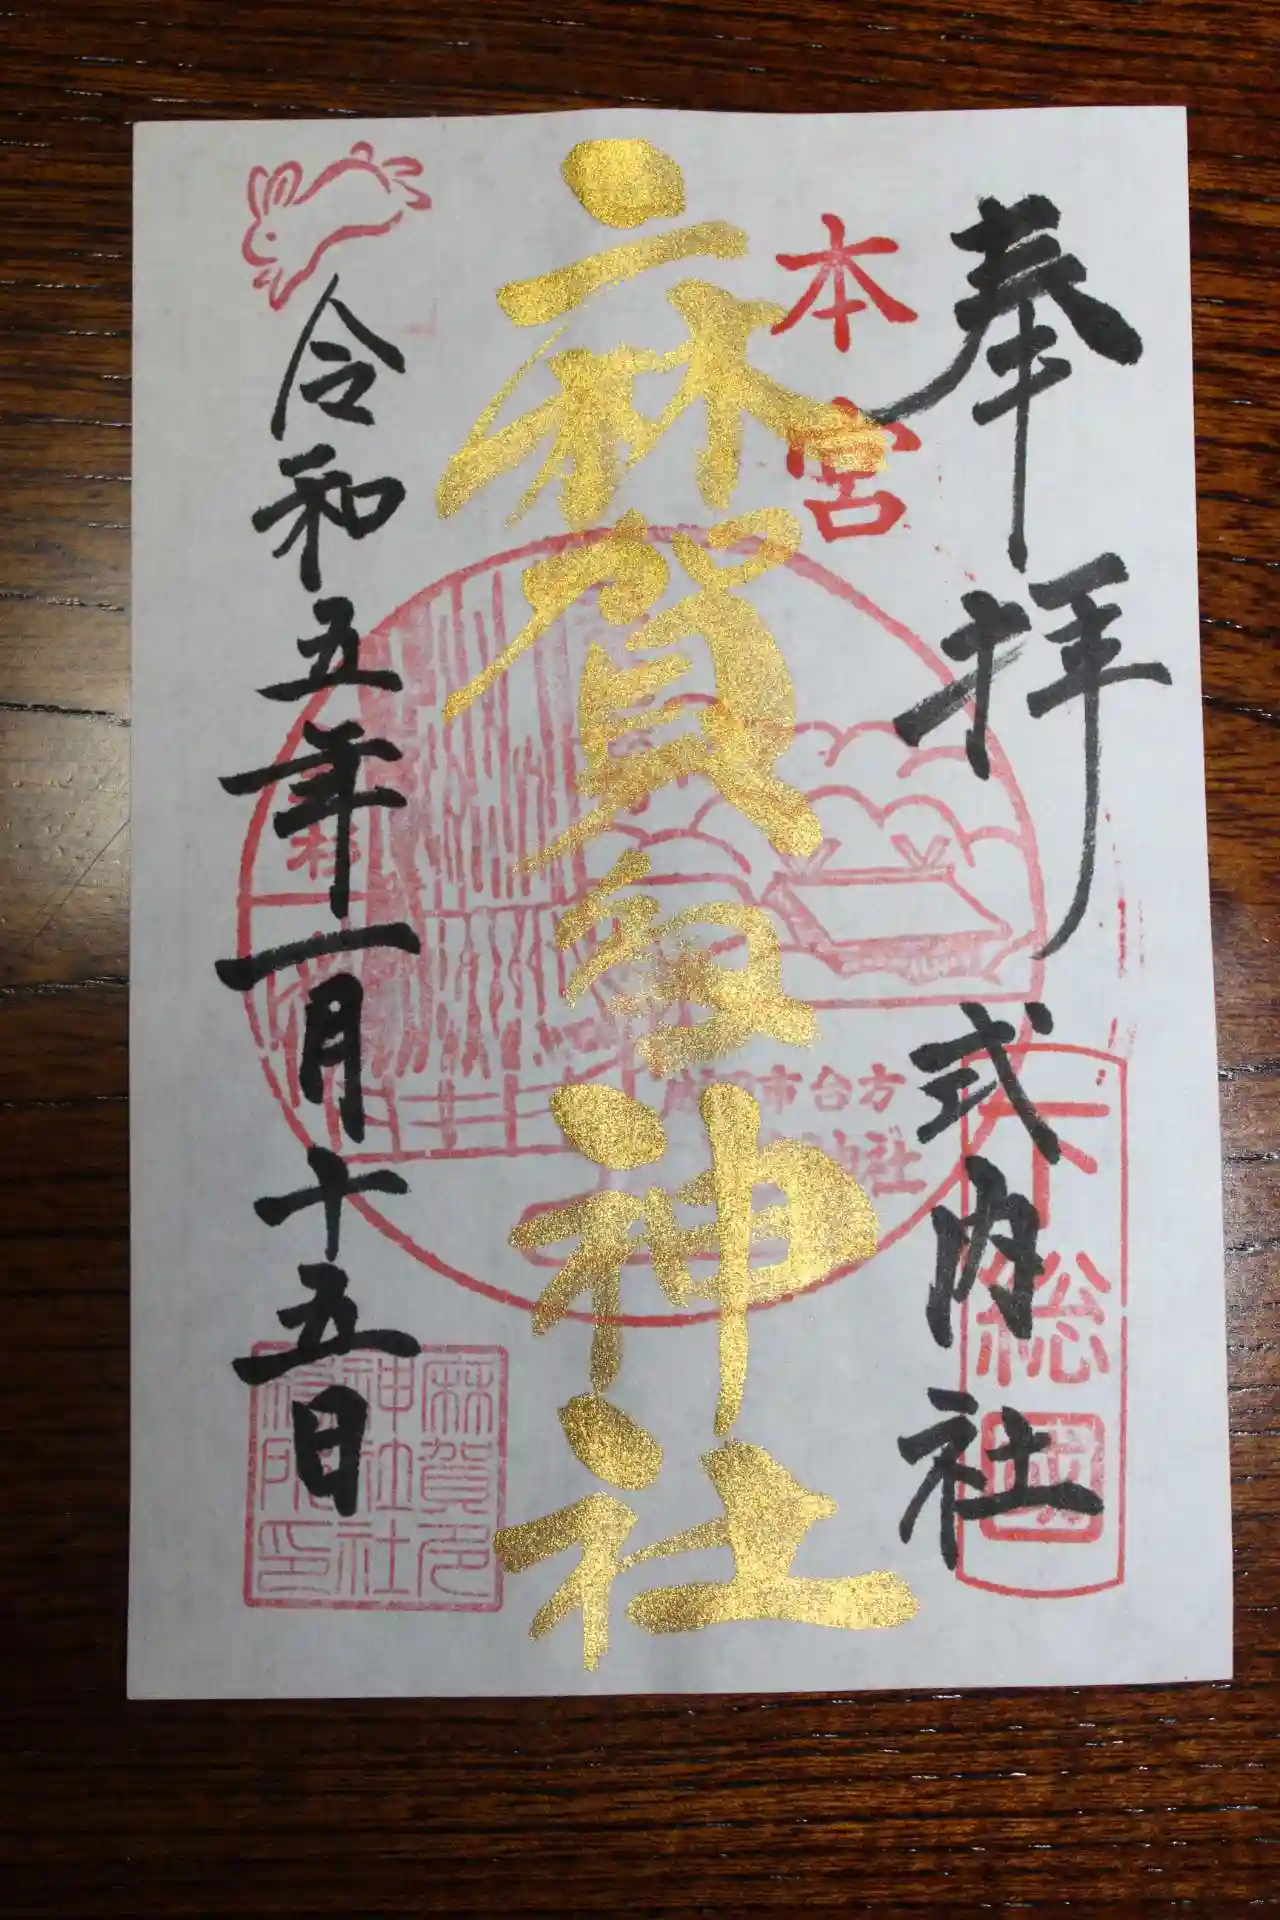 奉拝
式内社
下総国
本宮
麻賀多神社
成田市台方
神社
令和五年一月十五日
麻賀多
神社社
務所印